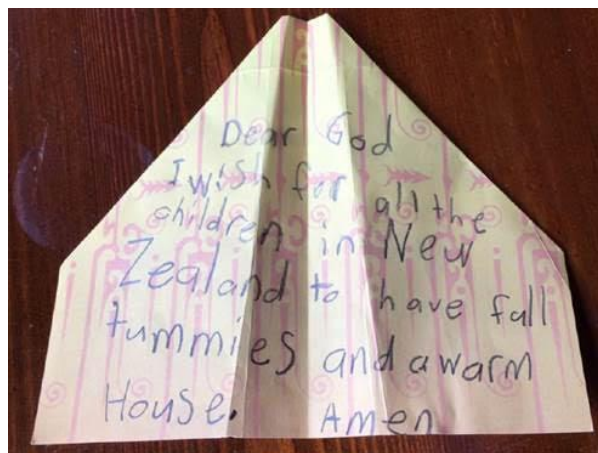 Dear God
I wish for all the
children in New
Zealand to have full
tummies and a warm
House. Amen